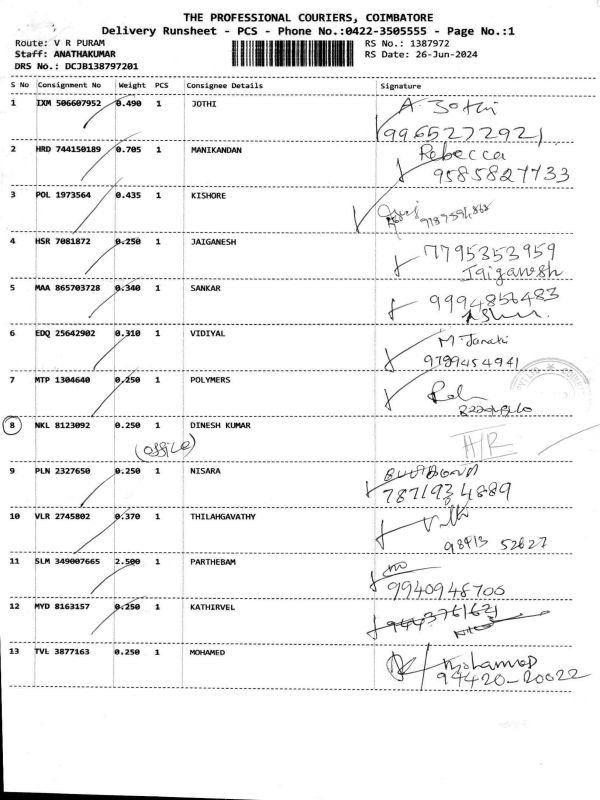 THE PROFESSIONAL COURIERS, COIMBATORE
Delivery Runsheet - PCS - Phone No.:0422-3505555 - Page No.:1
Route: V R PURAM RS No.: 1387972
Staff: ANATHAKUMAR RS Date: 26-Jun-2024
DRS No.: DCJB138797201
S No Consignment No Weight PCS Consignee Details Signature
1 IXM 506607952 0.490 1 JOTHI A. Jothi
9965272921
2 HRD 744150189 0.705 1 MANIKANDAN Rebecca
9585827733
3 POL 1973564 0.435 1 KISHORE
4 HSR 7081872 0.250 1 JAIGANESH 7795353959
Jaiganesh
5 MAA 865703728 0.340 1 SANKAR 9994856483
6 EDQ 25642902 0.310 1 VIDIYAL M-Janaki
9789454941
7 MTP 1304640 0.250 1 POLYMERS
8 NKL 8123092 0.250 1 DINESH KUMAR H/R
(office)
9 PLN 2327650 0.250 1 NISARA
7871934889
10 VLR 2745802 0.370 1 THILAHGAVATHY
98413 52827
11 SLM 349007665 2.500 1 PARTHEBAM
9940946706
12 MYD 8163157 0.250 1 KATHIRVEL 9443761621
13 TVL 3877163 0.250 1 MOHAMED Mohamed
94420-20022